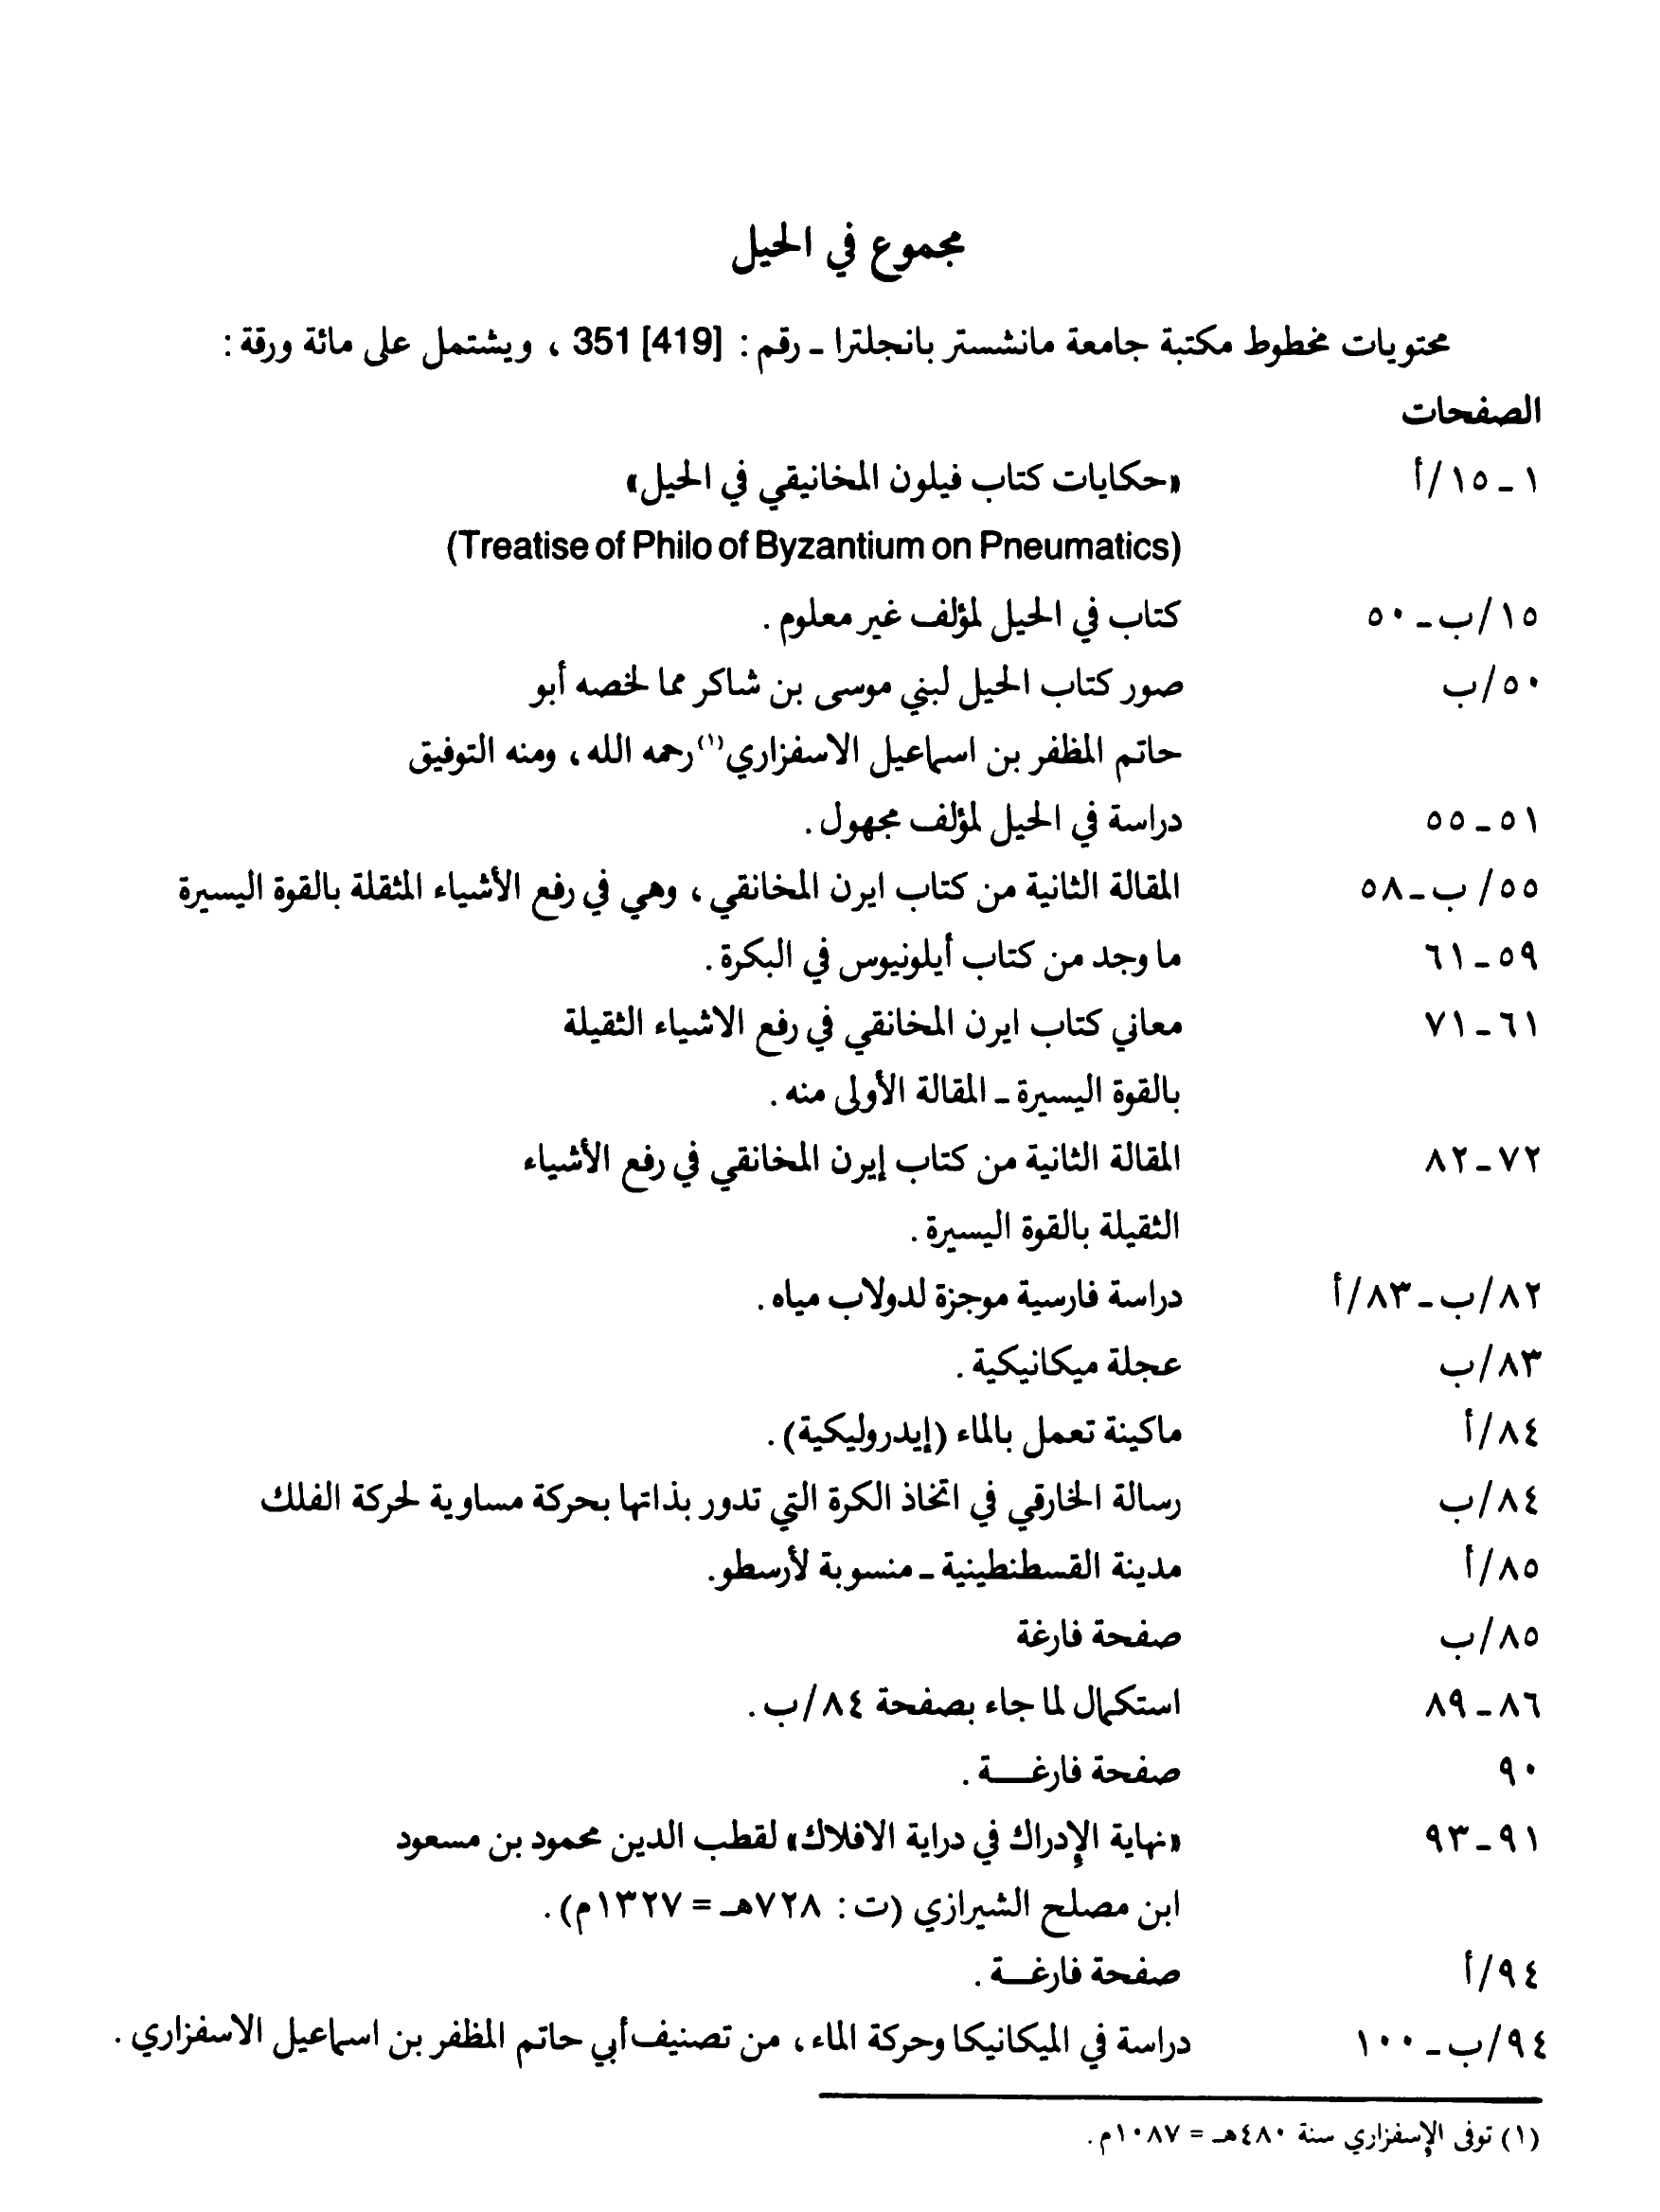 مجموع في الحيل
محتويات مخطوط مكتبة جامعة مانشستر بانجلترا ـ رقم : [419] 351 ، ويشتمل على مائة ورقة :
الصفحات
١ ـ ١٥/أ «حكايات كتاب فيلون المخانيقي في الحيل»
(Treatise of Philo of Byzantium on Pneumatics)
١٥/ب ـ ٥٠ كتاب في الحيل لمؤلف غير معلوم .
٥٠/ب صور كتاب الحيل لبني موسى بن شاكر مما لخصه أبو
حاتم المظفر بن اسماعيل الاسفزاري(١) رحمه الله ، ومنه التوفيق
٥١ ـ ٥٥ دراسة في الحيل لمؤلف مجهول .
٥٥/ ب ـ ٥٨ المقالة الثانية من كتاب ايرن المخانقي ، وهي في رفع الأشياء المثقلة بالقوة اليسيرة
٥٩ ـ ٦١ ما وجد من كتاب أيلونيوس في البكرة .
٦١ ـ ٧١ معاني كتاب ايرن المخانقي في رفع الاشياء الثقيلة
بالقوة اليسيرة ـ المقالة الأولى منه .
٧٢ ـ ٨٢ المقالة الثانية من كتاب إيرن المخانقي في رفع الأشياء
الثقيلة بالقوة اليسيرة .
٨٢/ب ـ ٨٣/أ دراسة فارسية موجزة لدولاب مياه .
٨٣/ب عجلة ميكانيكية .
٨٤/أ ماكينة تعمل بالماء (إيدروليكية) .
٨٤/ب رسالة الخارقي في اتخاذ الكرة التي تدور بذاتها بحركة مساوية لحركة الفلك
٨٥/أ مدينة القسطنطينية ـ منسوبة لأرسطو.
٨٥/ب صفحة فارغة
٨٦ ـ ٨٩ استكمال لما جاء بصفحة ٨٤/ب .
٩٠ صفحة فارغـــة .
٩١ ـ ٩٣ «نهاية الإدراك في دراية الافلاك» لقطب الدين محمود بن مسعود
ابن مصلح الشيرازي (ت : ٧٢٨هـ = ١٣٢٧م) .
٩٤/أ صفحة فارغــة .
٩٤/ب ـ ١٠٠ دراسة في الميكانيكا وحركة الماء ، من تصنيف أبي حاتم المظفر بن اسماعيل الاسفزاري .
(١) توفى الإسفزاري سنة ٤٨٠هـ = ١٠٨٧م .